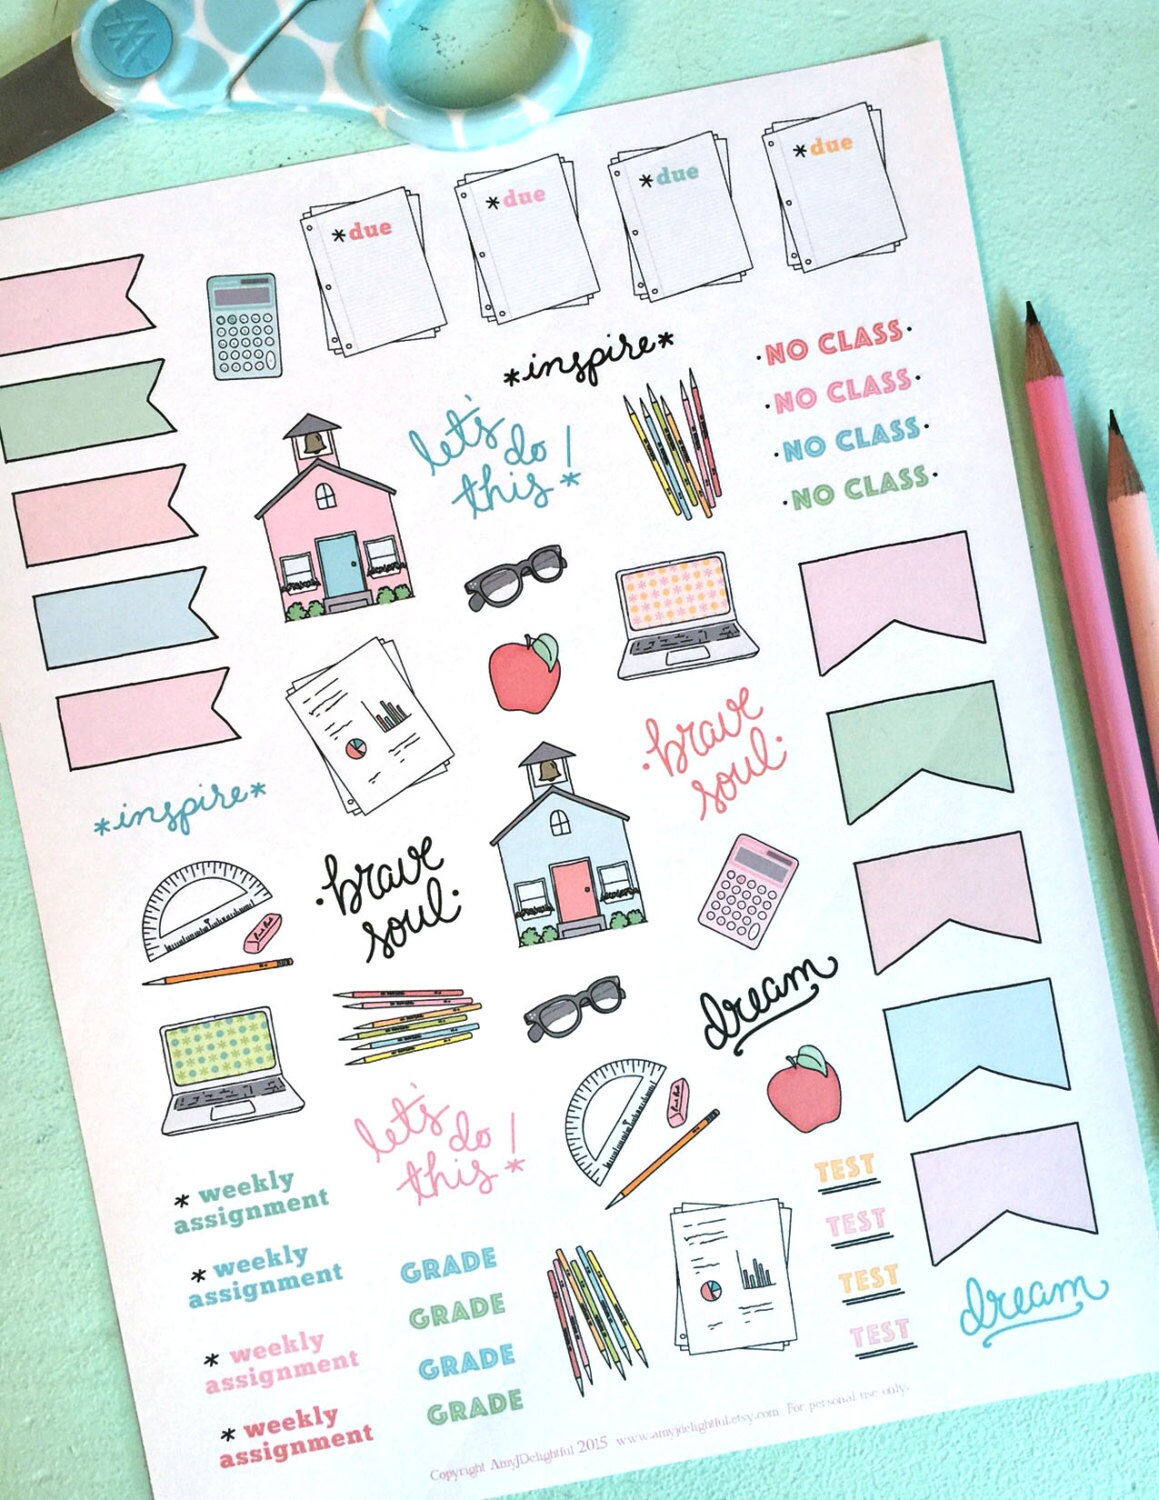 *due
*due
*due
*due
*inspire*
·NO CLASS·
·NO CLASS·
·NO CLASS·
·NO CLASS·
let's
do !
this*
·brave
soul·
*inspire*
·brave
soul·
dream
let's
do !
this*
* weekly
assignment
* weekly
assignment
* weekly
assignment
* weekly
assignment
GRADE
GRADE
GRADE
GRADE
TEST
TEST
TEST
TEST
dream
Copyright AmyJDelightful 2015 www.amyjdelightful.etsy.com For personal use only.